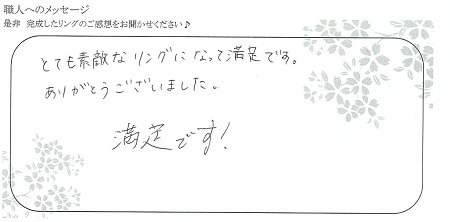 職人へのメッセージ
是非 完成したリングのご感想をお聞かせください♪
とても素敵なリングになって満足です。
ありがとうございました。
満足です!